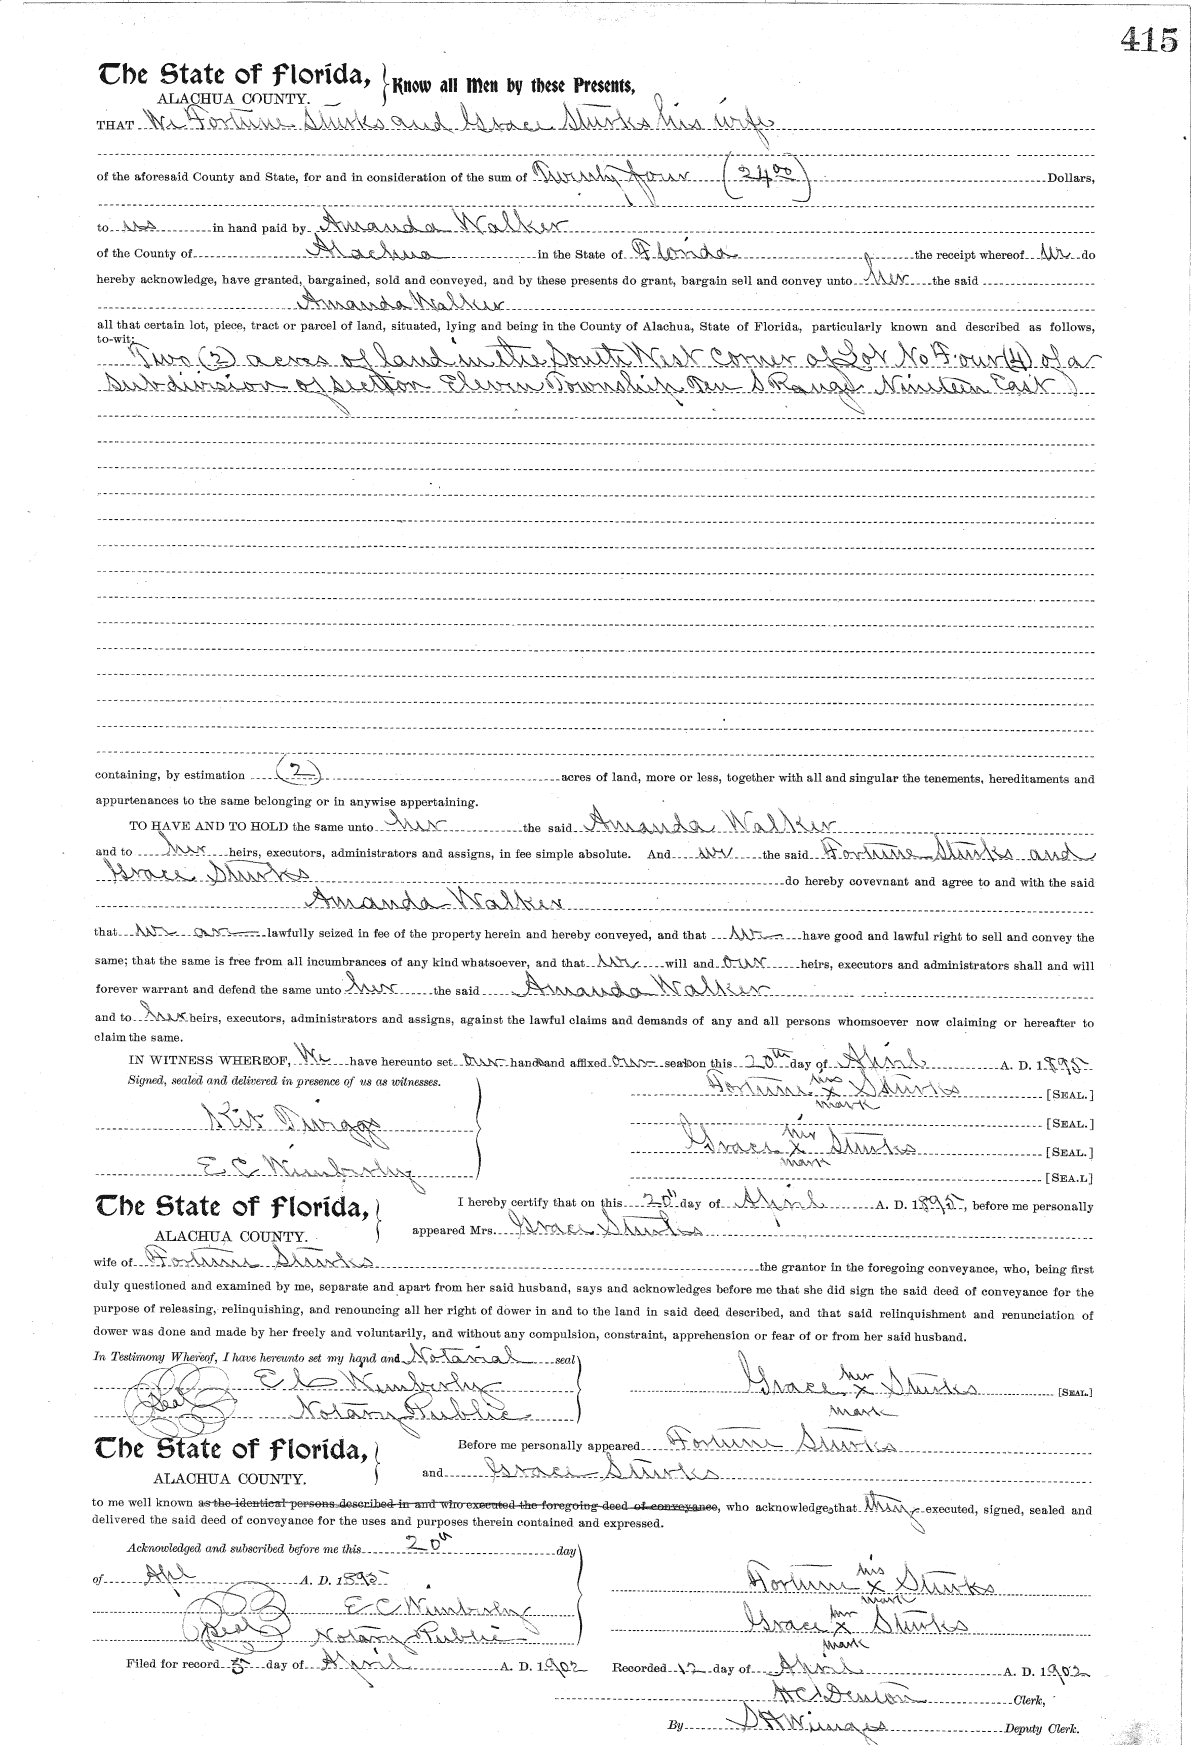 415
The State of Florida, Know all Men by these Presents,
ALACHUA COUNTY.
THAT We Fortune Sturks and Grace Sturks his wife
of the aforesaid County and State, for and in consideration of the sum of Twenty four (24 00) Dollars,
to us in hand paid by Amanda Walker
of the County of Alachua in the State of Florida the receipt whereof we do
hereby acknowledge, have granted, bargained, sold and conveyed, and by these presents do grant, bargain sell and convey unto her the said
Amanda Walker
all that certain lot, piece, tract or parcel of land, situated, lying and being in the County of Alachua, State of Florida, particularly known and described as follows,
to-wit:
Two (2) acres of land in the South West Corner of Lot No Four (4) of a
subdivision of section Eleven Township Ten S Range Nineteen East
containing, by estimation (2) acres of land, more or less, together with all and singular the tenements, hereditaments and
appurtenances to the same belonging or in anywise appertaining.
TO HAVE AND TO HOLD the same unto her the said Amanda Walker
and to her heirs, executors, administrators and assigns, in fee simple absolute. And we the said Fortune Sturks and
Grace Sturks do hereby covevnant and agree to and with the said
Amanda Walker
that we are lawfully seized in fee of the property herein and hereby conveyed, and that we have good and lawful right to sell and convey the
same; that the same is free from all incumbrances of any kind whatsoever, and that we will and our heirs, executors and administrators shall and will
forever warrant and defend the same unto her the said Amanda Walker
and to her heirs, executors, administrators and assigns, against the lawful claims and demands of any and all persons whomsoever now claiming or hereafter to
claim the same.
IN WITNESS WHEREOF, We have hereunto set our hands and affixed our seals on this 20th day of April A. D. 1895
Signed, sealed and delivered in presence of us as witnesses.
Fortune his x mark Sturks [SEAL.]
Kit Twiggs [SEAL.]
Grace her x mark Sturks [SEAL.]
E C Wimberly [SEA.L]
The State of Florida, I hereby certify that on this 20th day of April A. D. 1895, before me personally
ALACHUA COUNTY. appeared Mrs. Grace Sturks
wife of Fortune Sturks the grantor in the foregoing conveyance, who, being first
duly questioned and examined by me, separate and apart from her said husband, says and acknowledges before me that she did sign the said deed of conveyance for the
purpose of releasing, relinquishing, and renouncing all her right of dower in and to the land in said deed described, and that said relinquishment and renunciation of
dower was done and made by her freely and voluntarily, and without any compulsion, constraint, apprehension or fear of or from her said husband.
In Testimony Whereof, I have hereunto set my hand and Notarial seal
E C Wimberly Grace her x mark Sturks [SEAL.]
Seal Notary Public
The State of Florida, Before me personally appeared Fortune Sturks
ALACHUA COUNTY. and Grace Sturks
to me well known as the identical persons described in and who executed the foregoing deed of conveyance, who acknowledges that they executed, signed, sealed and
delivered the said deed of conveyance for the uses and purposes therein contained and expressed.
Acknowledged and subscribed before me this 20th day
of Apl A. D. 1895 Fortune his x mark Sturks
E C Wimberly
Seal Notary Public Grace her x mark Sturks
Filed for record 5 day of April A. D. 1902 Recorded 12 day of April A. D. 1902
H C Denton Clerk,
By S H Wienges Deputy Clerk.